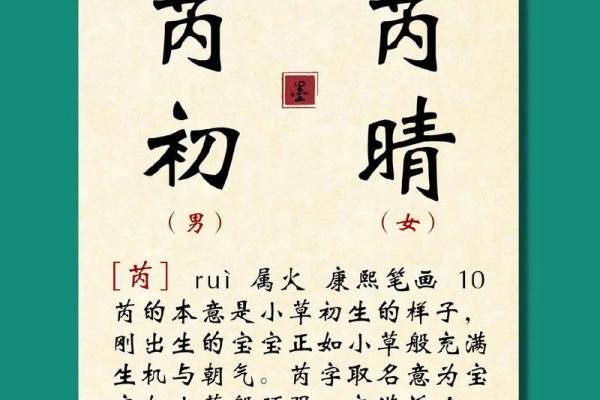 芮 芮
墨
初 晴
（男） （女）
［芮］ ruì 属火 康熙笔画 10
芮的本意是小草初生的样子，
刚出生的宝宝正如小草般充满
生机与朝气。芮字取名意为宝